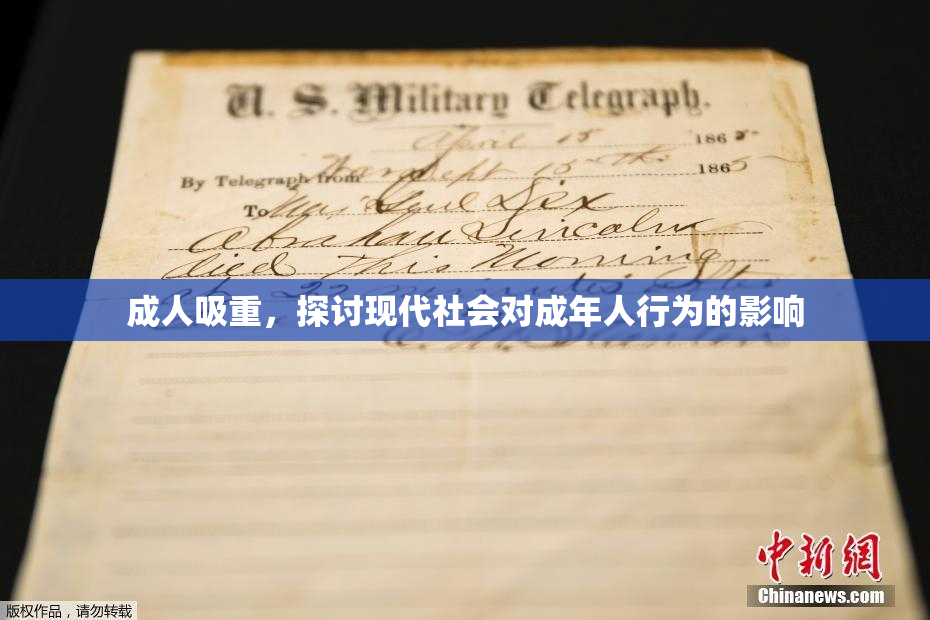 U. S. Military Telegraph.
April 15 1865
By Telegraph from War Dept 15th 1865
To Maj Genl Dix
Abraham Lincoln
died This Morning
at 22 minutes after
成人吸重，探讨现代社会对成年人行为的影响
E. M. Stanton
中新網
Chinanews.com
版权作品，请勿转载